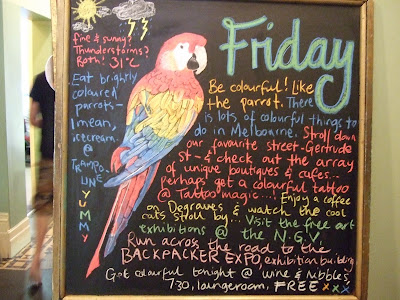 fine & sunny?
Thunderstorms?
Both! 31°C
Friday
Eat brightly
coloured
parrots-
I mean,
icecream.
@
TRAMPOLINE
YUMMY
Be colourful! Like
the parrot. There
is lots of colourful things to
do in Melbourne. Stroll down
our favourite street-Gertrude
St- & check out the array
of unique boutiques & cafes...
perhaps get a colourful tattoo
@ Tattoo magic.... Enjoy a coffee
on Degraves & watch the cool
cats stroll by... Visit the free art
exhibitions @ the N.G.V.
Run across the road to the
BACKPACKER EXPO, exhibition building
Get colourful tonight @ wine & nibbles
7:30, loungeroom, FREE xxx